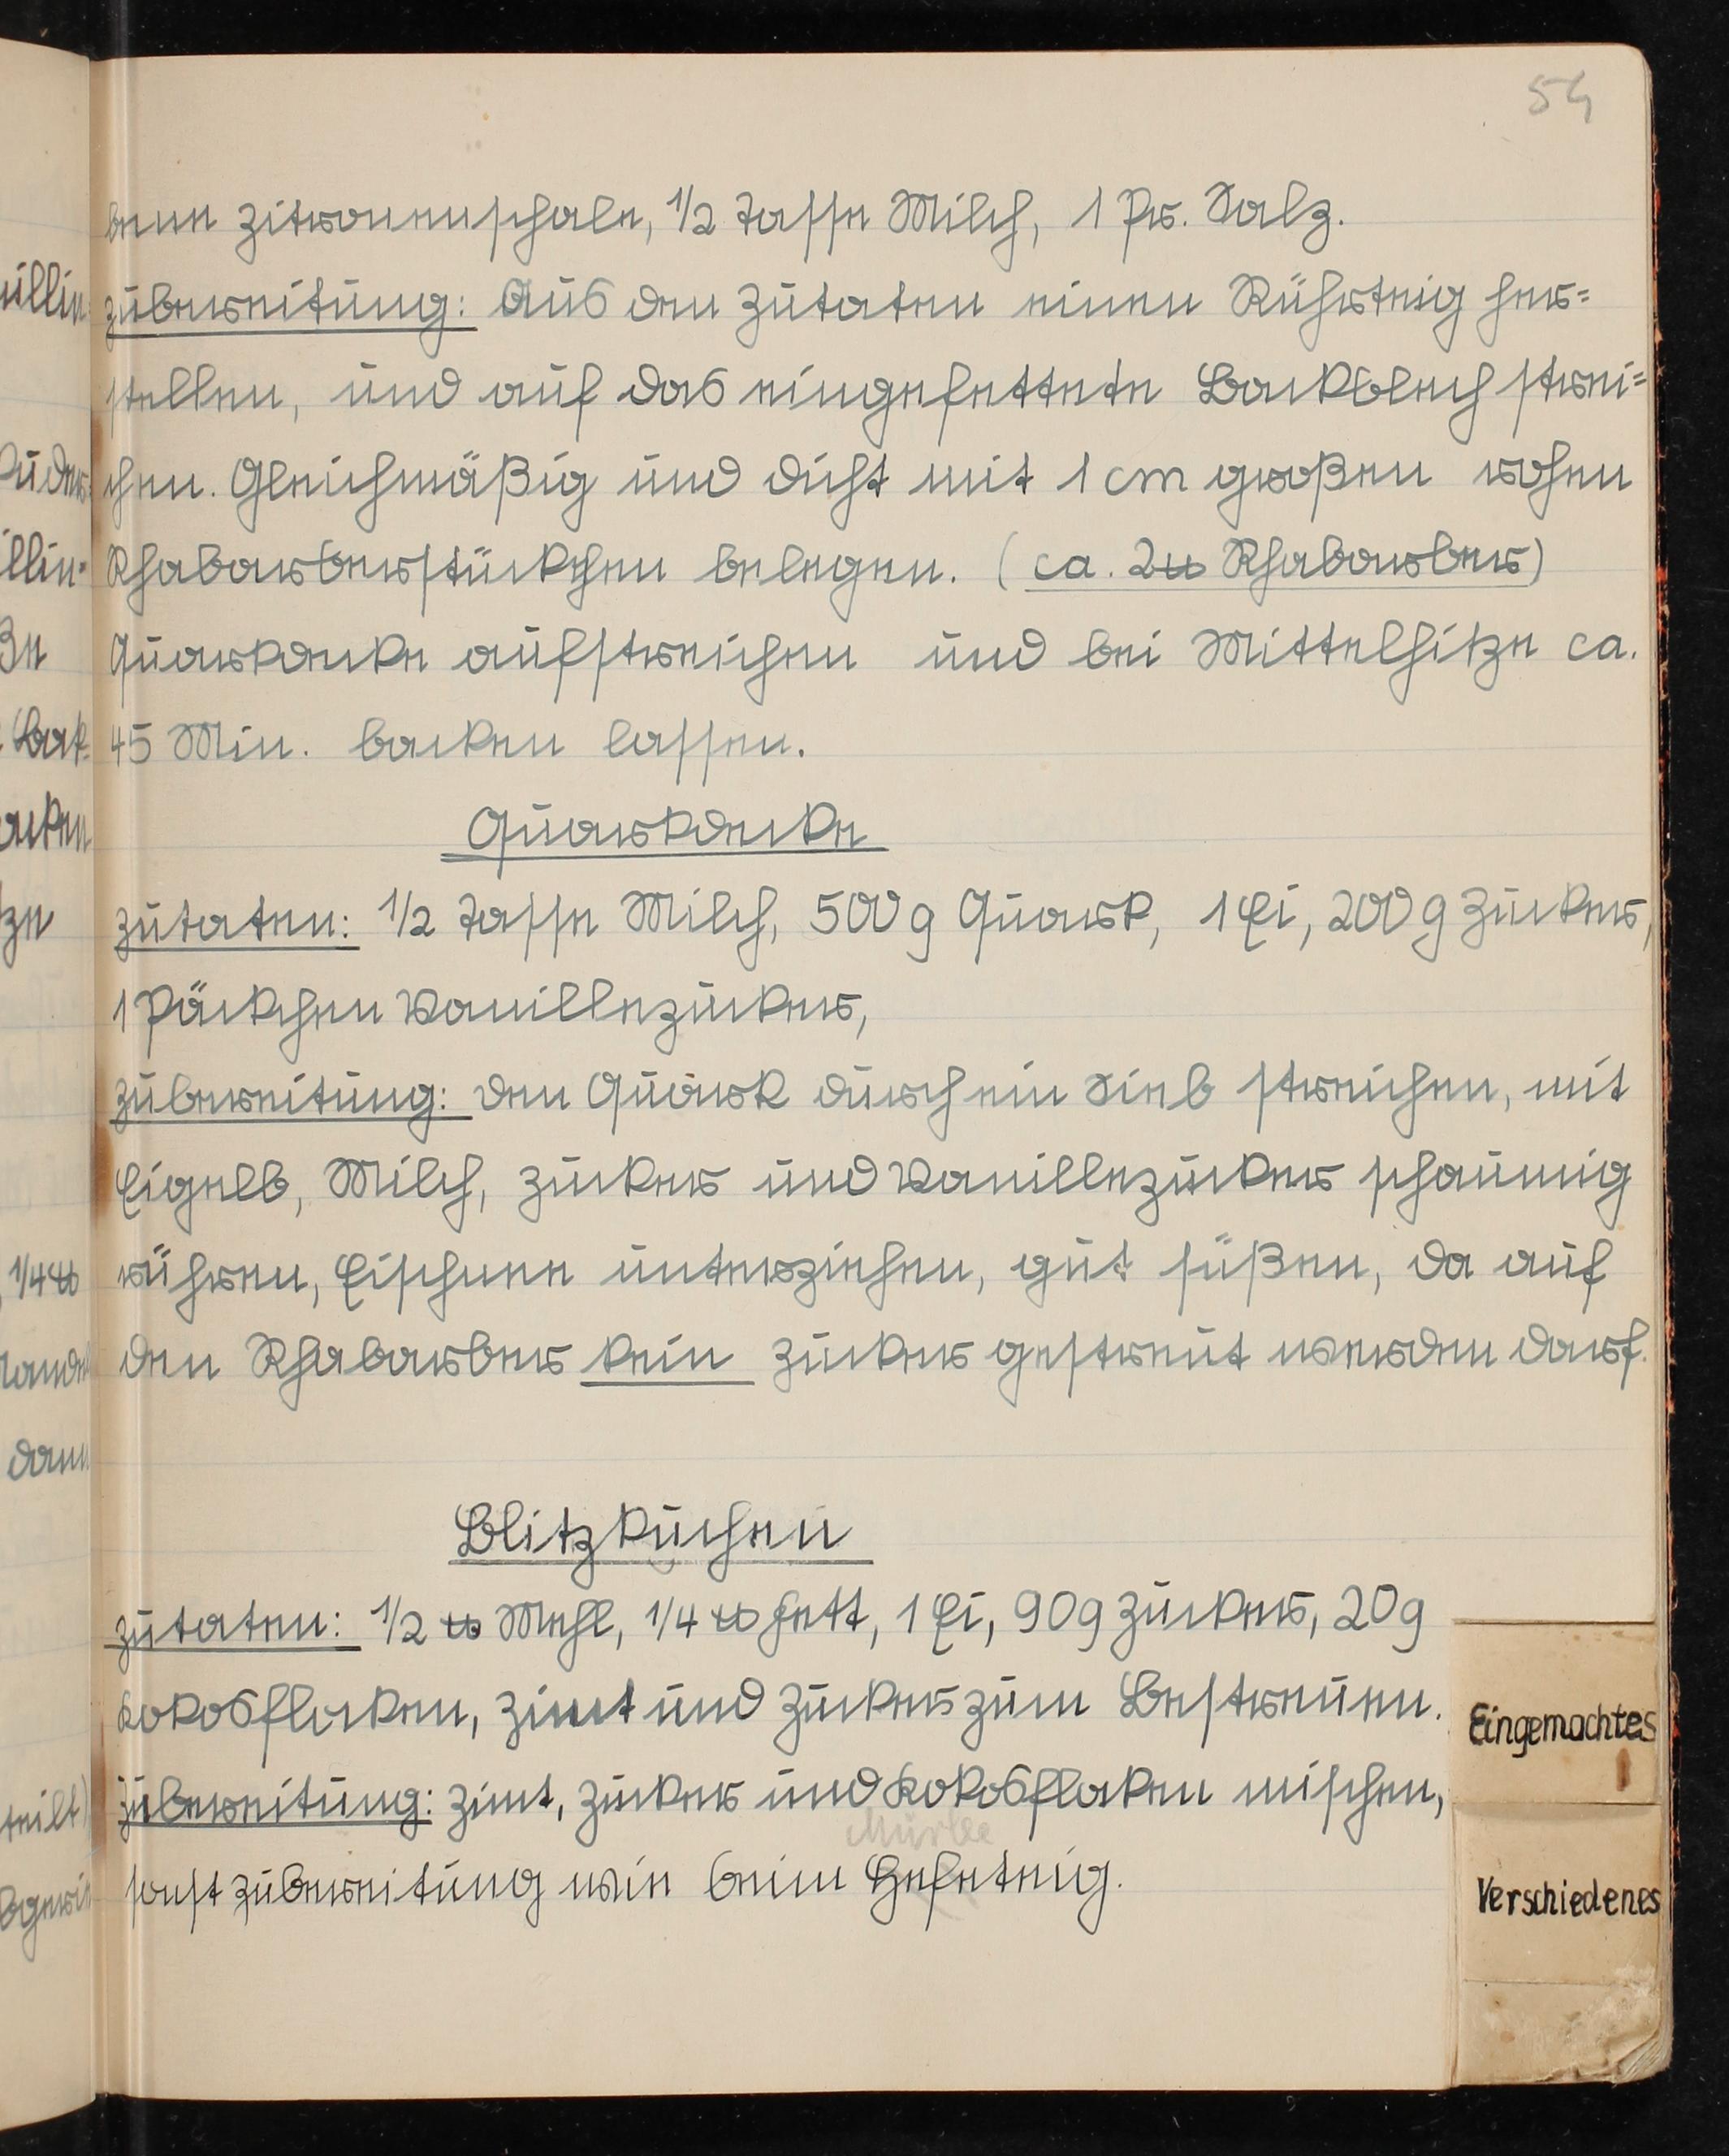 54
bene Zitronenschale, 1/2 Tasse Milch, 1 Pr. Salz.
Zubereitung: Aus den Zutaten einen Rührteig her=
stellen, und auf das eingefettete Backblech strei=
chen. Gleichmäßig und dicht mit 1 cm großen rohen
Rhabarberstückchen belegen. (ca. 2 ℔ Rhabarber)
Quarkdecke aufstreichen und bei Mittelhitze ca.
45 Min. backen lassen.
Quarkdecke
Zutaten: 1/2 Tasse Milch, 500 g Quark, 1 Ei, 200 g Zucker,
1 Päckchen Vanillezucker,
Zubereitung: Den Quark durch ein Sieb streichen, mit
Eigelb, Milch, Zucker und Vanillezucker schaumig
rühren, Eischnee unterziehen, gut süßen, da auf
den Rhabarber kein Zucker gestreut werden darf.
Blitzkuchen
Zutaten: 1/2 ℔ Mehl, 1/4 ℔ Fett, 1 Ei, 90 g Zucker, 20 g
Kokosflocken, Zimt und Zucker zum Bestreuen.
Zubereitung: Zimt, Zucker und Kokosfloken mischen,
Mürbe
sonst Zubereitung wie beim Hefeteig.
Eingemachtes
Verschiedenes